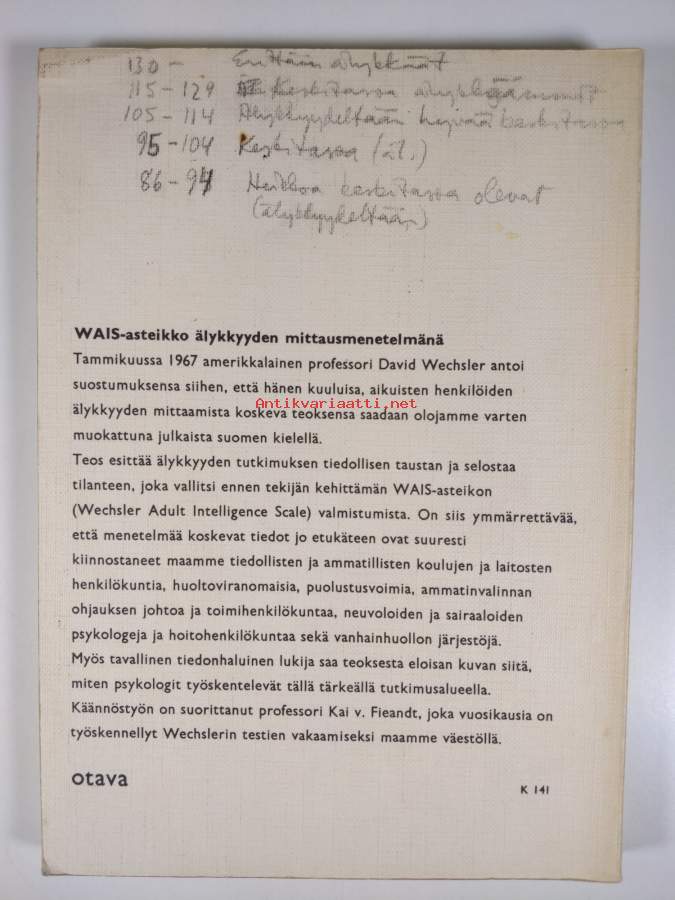 130 - Erittäin älykkäät
115 - 129 Keskitasoa älykkäämmät
105 - 114 Älykkyydeltään hyvää keskitasoa
95 - 104 Keskitasoa (äl.)
86 - 94 Heikkoa keskitasoa olevat
(älykkyydeltään)
WAIS-asteikko älykkyyden mittausmenetelmänä
Tammikuussa 1967 amerikkalainen professori David Wechsler antoi
suostumuksensa siihen, että hänen kuuluisa, aikuisten henkilöiden
älykkyyden mittaamista koskeva teoksensa saadaan olojamme varten
Antikvariaatti.net
muokattuna julkaista suomen kielellä.
Teos esittää älykkyyden tutkimuksen tiedollisen taustan ja selostaa
tilanteen, joka vallitsi ennen tekijän kehittämän WAIS-asteikon
(Wechsler Adult Intelligence Scale) valmistumista. On siis ymmärrettävää,
että menetelmää koskevat tiedot jo etukäteen ovat suuresti
kiinnostaneet maamme tiedollisten ja ammatillisten koulujen ja laitosten
henkilökuntia, huoltoviranomaisia, puolustusvoimia, ammatinvalinnan
ohjauksen johtoa ja toimihenkilökuntaa, neuvoloiden ja sairaaloiden
psykologeja ja hoitohenkilökuntaa sekä vanhainhuollon järjestöjä.
Myös tavallinen tiedonhaluinen lukija saa teoksesta eloisan kuvan siitä,
miten psykologit työskentelevät tällä tärkeällä tutkimusalueella.
Käännöstyön on suorittanut professori Kai v. Fieandt, joka vuosikausia on
työskennellyt Wechslerin testien vakaamiseksi maamme väestöllä.
otava
K 141